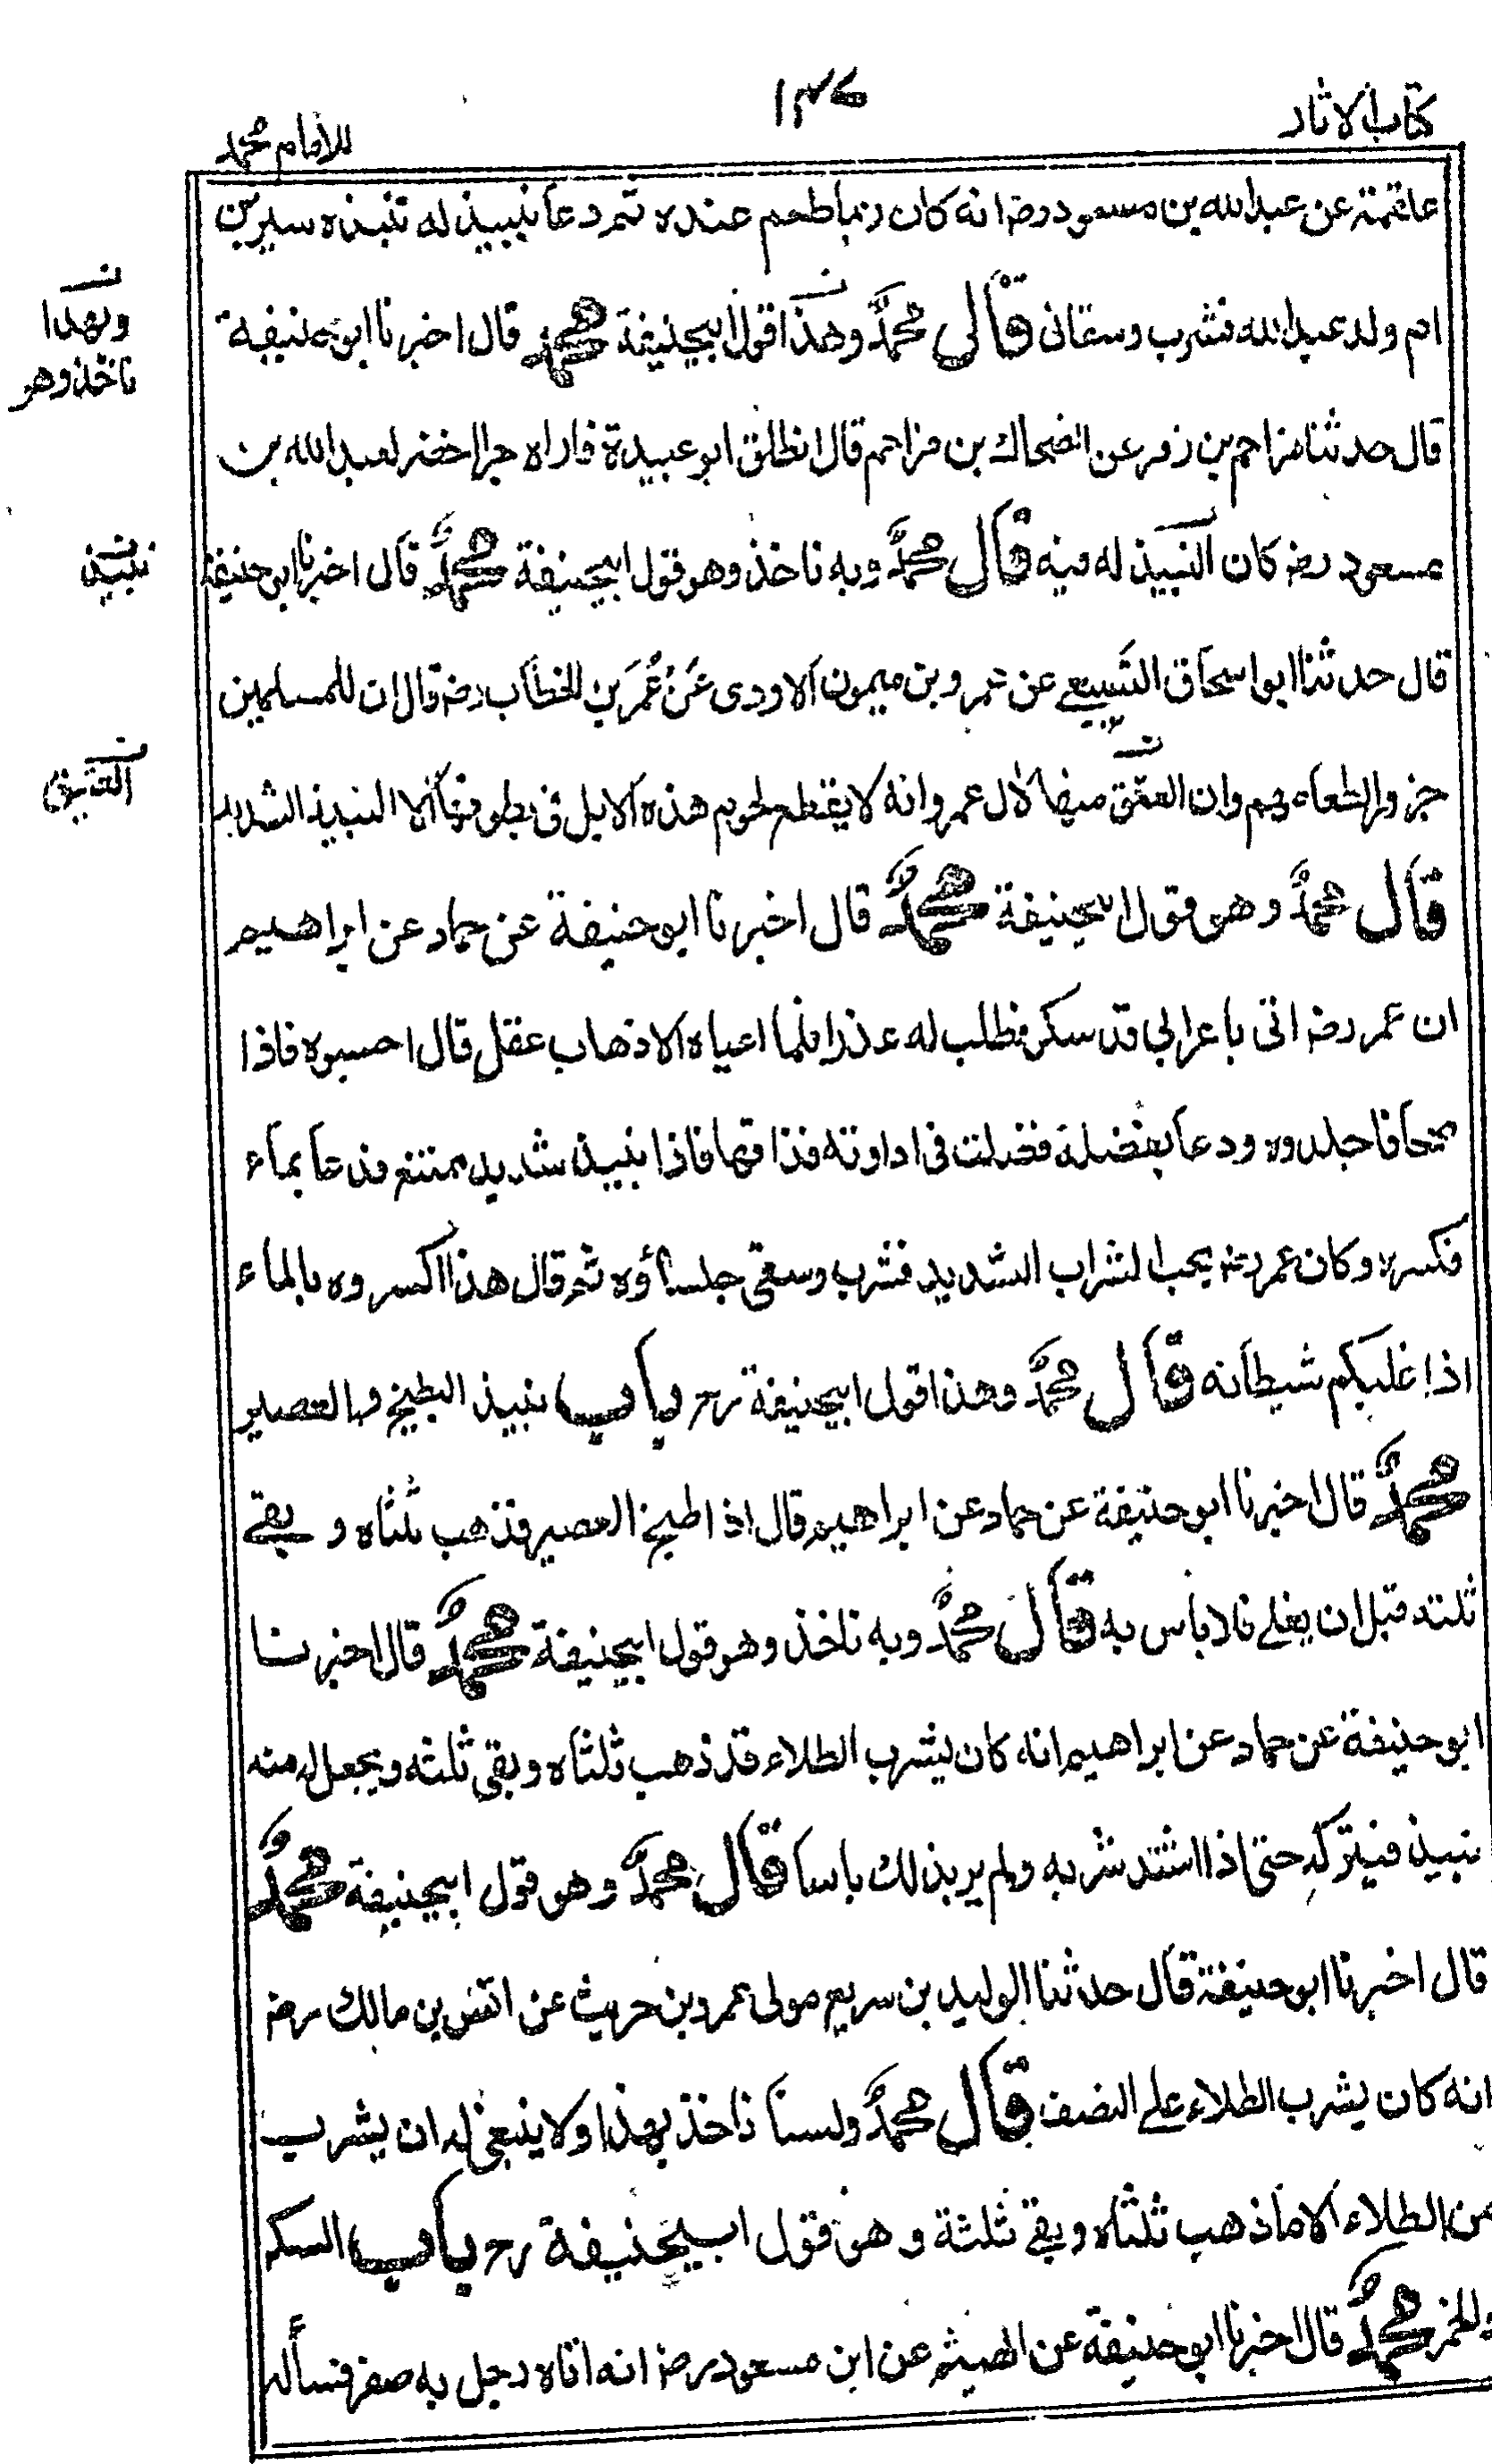 كتاب الاثار
١٣٧
للامام محمد
علقمة عن عبد الله بن مسعود رضه انه كان ربما طعم عنده ثم دعا بنبيذ له تنبذه سيرين
ام ولد عبد الله فشرب وسقانى قال محمد وهذا قول ابيحنيفة محمد قال اخبرنا ابو حنيفة
وبهذا
ناخذ وهو
قال حدثنا مزاحم بن زفر عن الضحاك بن مزاحم قال انطلق ابو عبيدة فاراه جرا اخضر لعبد الله بن
مسعود رضه كان النبيذ له فيه قال محمد وبه ناخذ وهو قول ابيحنيفة محمد قال اخبرنا ابو حنيفة
نبيذ
قال حدثنا ابو اسحاق السبيعى عن عمرو بن ميمون الاودى عن عمر بن الخطاب رضه قال ان للمسلمين
جزورا لطعامهم وان العتق منها لآل عمر وانه لا يقطع لحوم هذه الابل فى بطوننا الا النبيذ الشديد
العتيق
قال محمد وهو قول ابيحنيفة محمد قال اخبرنا ابو حنيفة عن حماد عن ابراهيم
ان عمر رضه اتى باعرابى قد سكر فطلب له عذرا فلما اعياه الا ذهاب عقل قال احبسوه فاذا
صحا فاجلدوه ودعا بفضلة فضلت فى اداوته فذاقها فاذا نبيذ شديد ممتنع فدعا بماء
فكسره وكان عمر رضه يحب الشراب الشديد فشرب وسقى جلساؤه ثم قال هذا اكسروه بالماء
اذا غلبكم شيطانه قال محمد وهذا قول ابيحنيفة رح باب نبيذ البطيخ والعصير
محمد قال اخبرنا ابو حنيفة عن حماد عن ابراهيم قال اذا طبخ العصير فذهب ثلثاه و بقى
ثلثه قبل ان يغلى فلا باس به قال محمد وبه ناخذ وهو قول ابيحنيفة محمد قال اخبرنا
ابو حنيفة عن حماد عن ابراهيم انه كان يشرب الطلاء قد ذهب ثلثاه وبقى ثلثه ويجعل له منه
نبيذ فيتركه حتى اذا اشتد شربه ولم ير بذلك باسا قال محمد وهو قول ابيحنيفة محمد
قال اخبرنا ابو حنيفة قال حدثنا الوليد بن سريع مولى عمرو بن حريث عن انس بن مالك رضه
انه كان يشرب الطلاء على النصف قال محمد ولسنا ناخذ بهذا ولا ينبغى له ان يشرب
من الطلاء الا ما ذهب ثلثاه وبقى ثلثة وهو قول ابيحنيفة رح باب السكر
والخمر محمد قال اخبرنا ابو حنيفة عن الهيثم عن ابن مسعود رضه انه اتاه رجل به صفر فساله